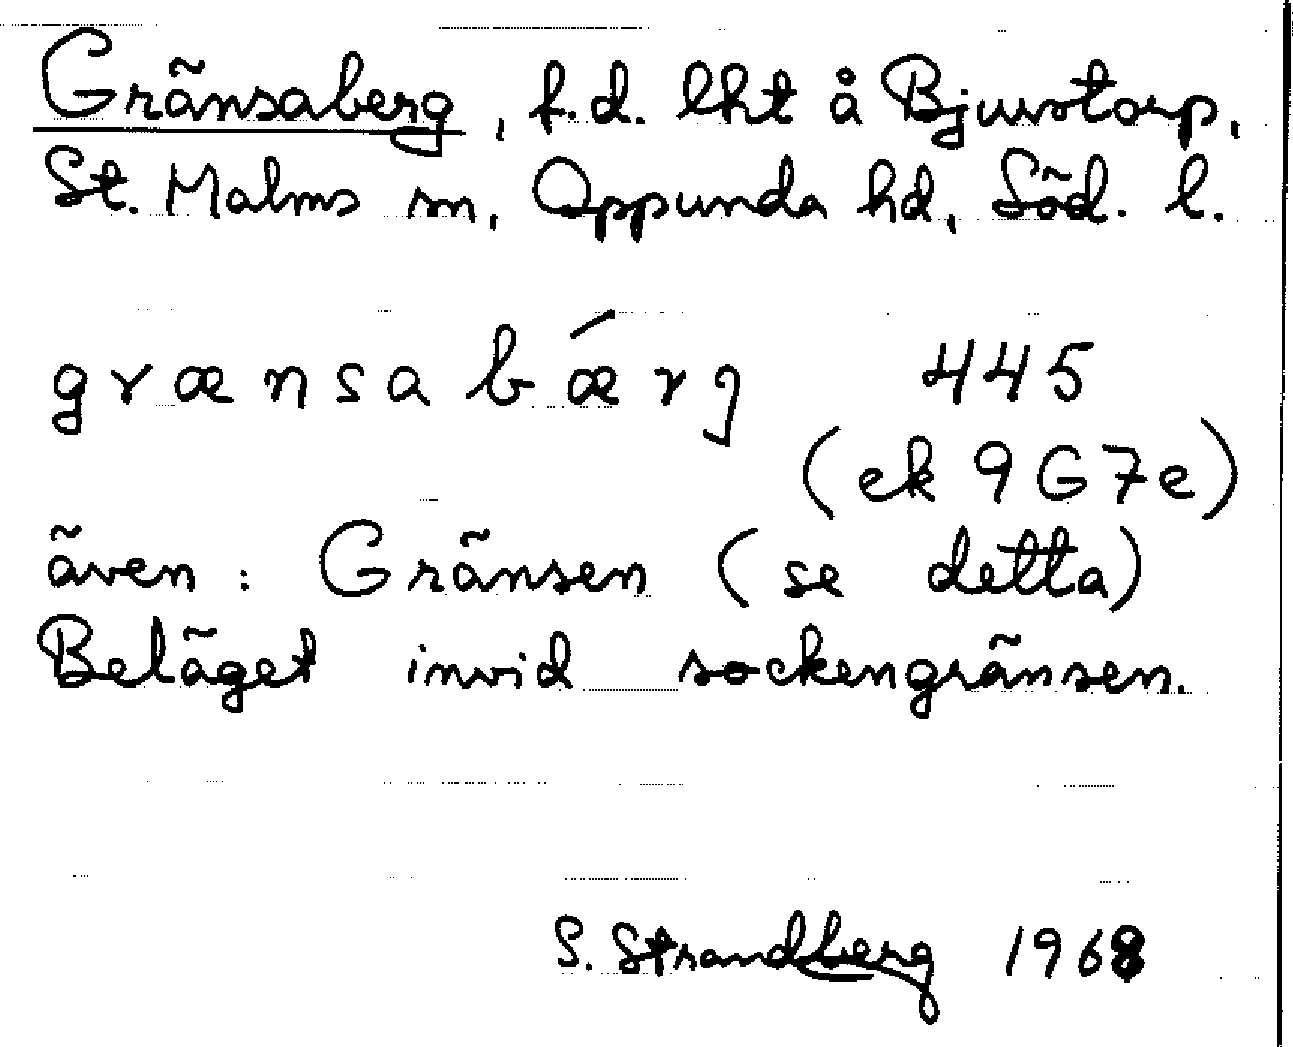 Gränsaberg, f.d. lht å Bjurstorp,
St. Malms sn, Oppunda hd, Söd. l.
grænsabǽrj 445
(ek 9G7e)
även: Gränsen (se detta)
Beläget invid sockengränsen.
S. Strandberg 1968